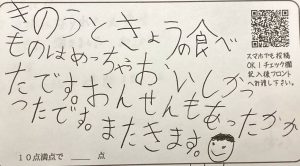 きのうときょうの食べ
ものはめっちゃおいしかっ
たです。おんせんもあったかか
ったです。またきます。
スマホでも投稿
OK！チェック欄
記入後フロント
へお渡し下さい。
10点満点で＿＿点